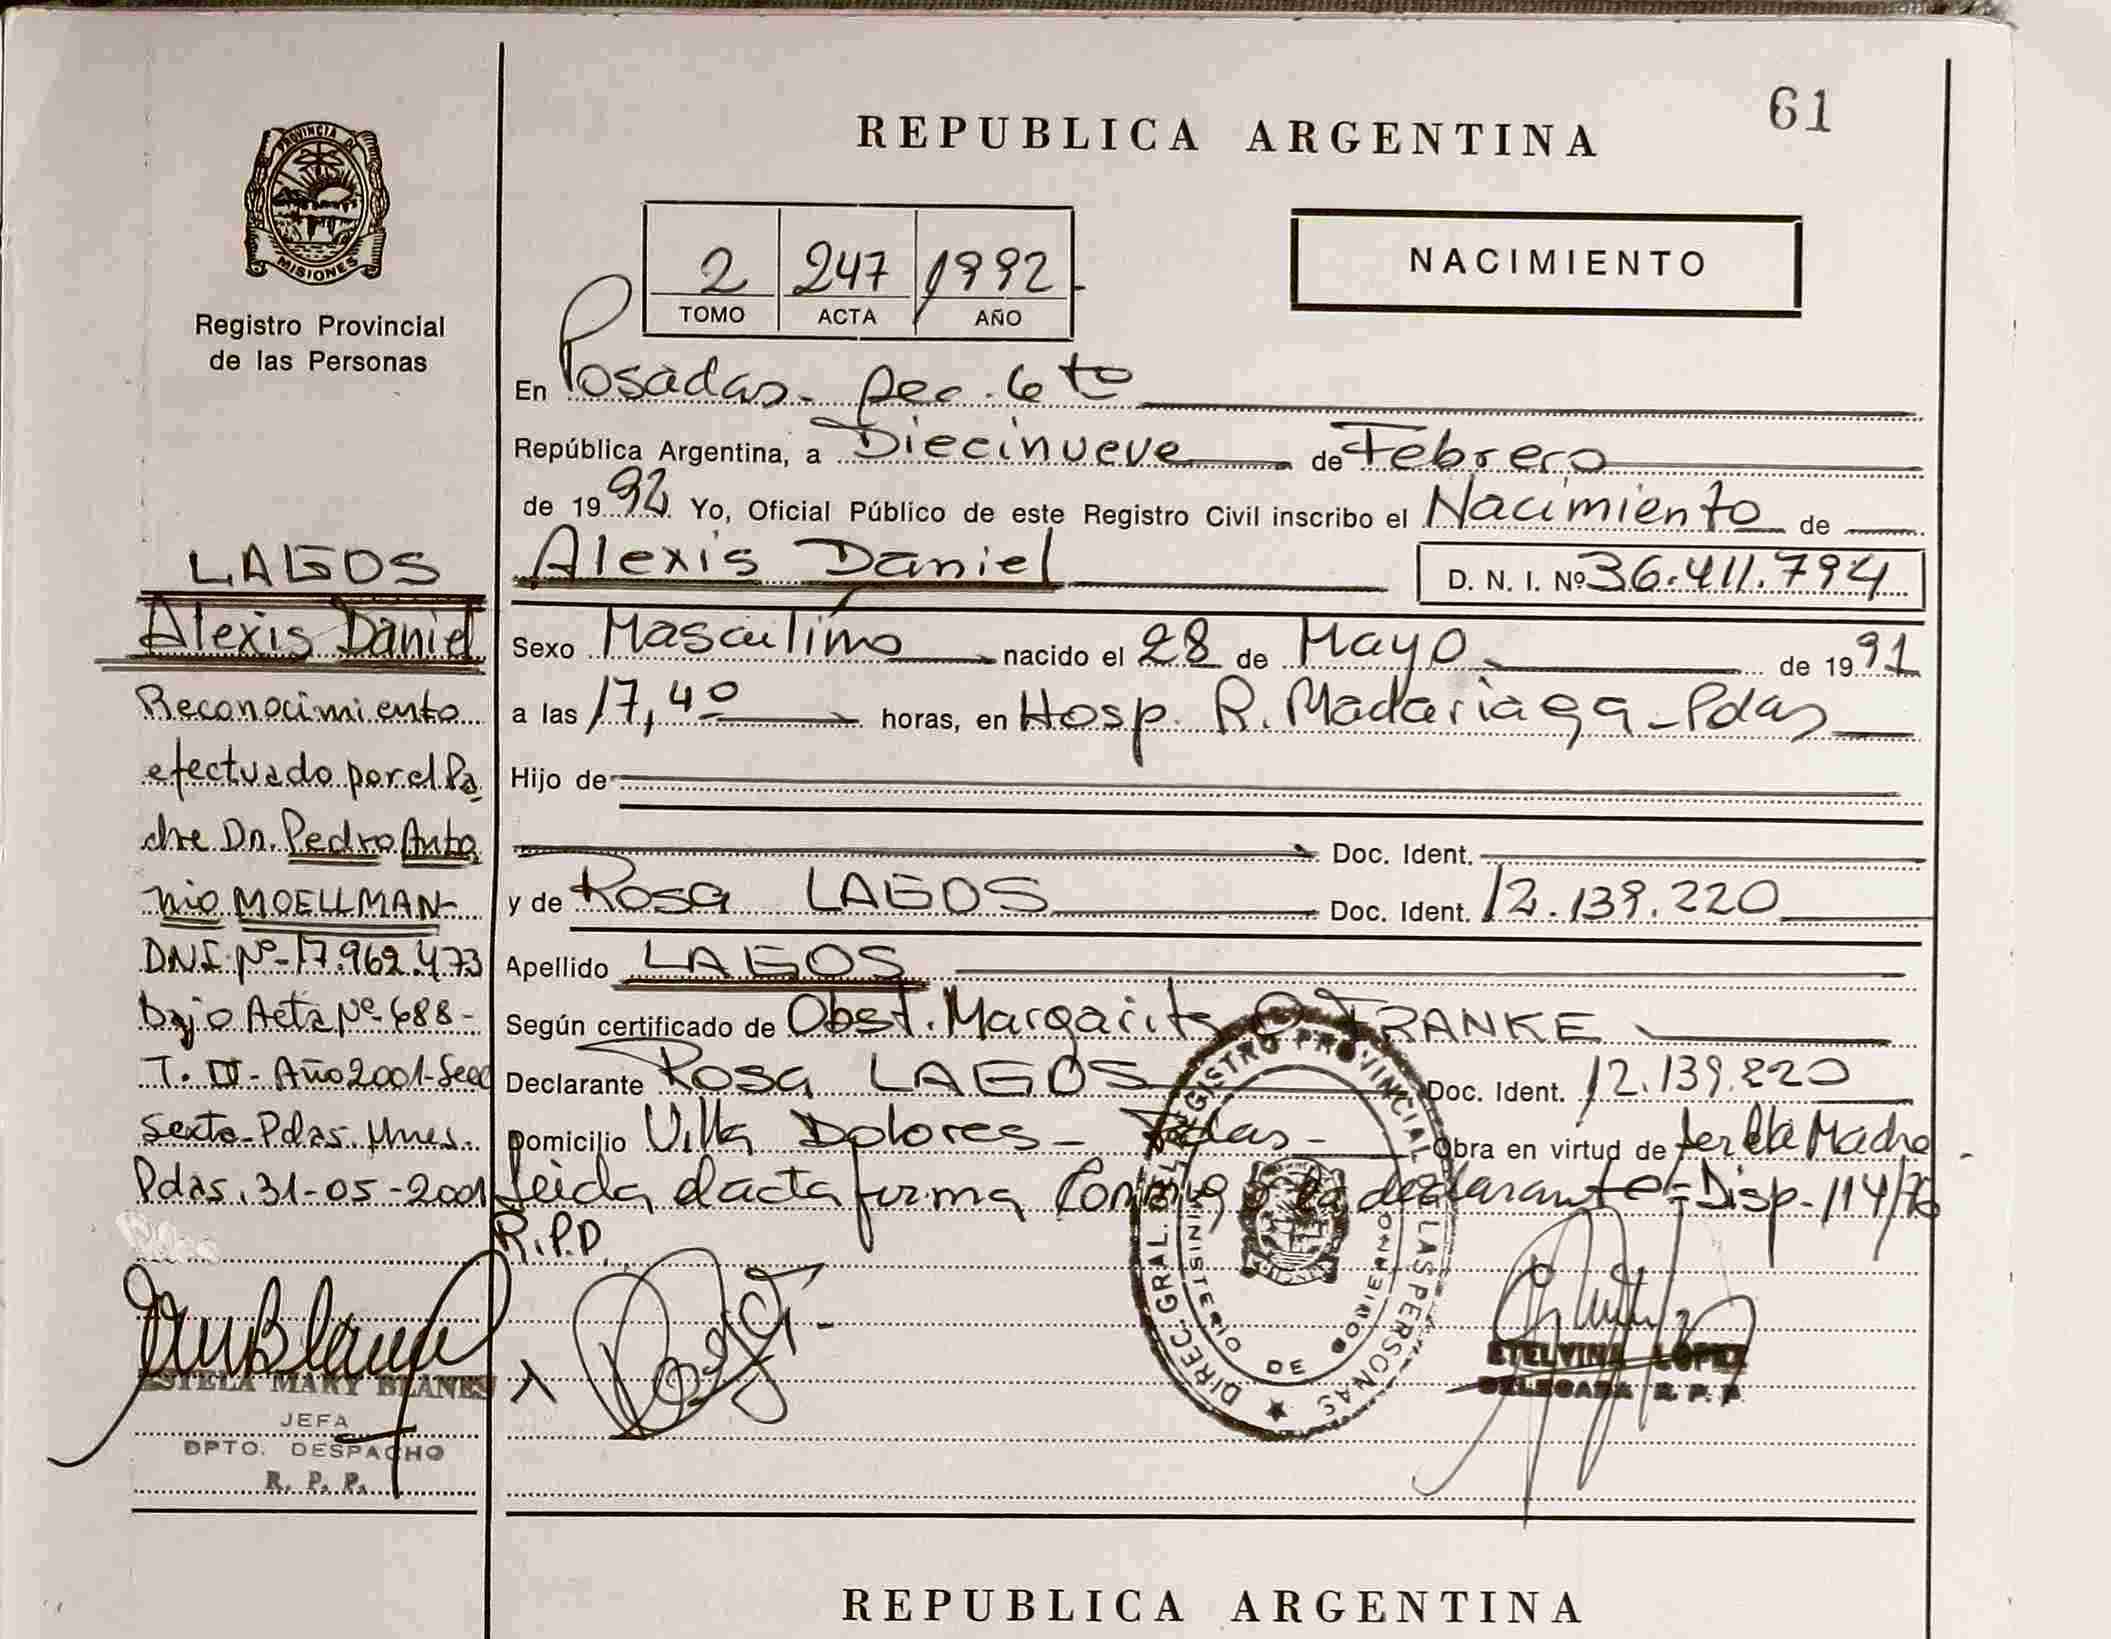 61
REPUBLICA ARGENTINA
PROVINCIA DE
MISIONES
Registro Provincial
de las Personas
2 247 1992
TOMO ACTA AÑO
NACIMIENTO
En Posadas - Sec. 6to
República Argentina, a Diecinueve de Febrero
de 1992 Yo, Oficial Público de este Registro Civil inscribo el Nacimiento de
Alexis Daniel D. N. I. Nº 36.411.794
Sexo Masculino nacido el 28 de Mayo de 1991
a las 17,40 horas, en Hosp. R. Madariaga - Pdas
Hijo de
Doc. Ident.
y de Rosa LAGOS Doc. Ident. 12.139.220
Apellido LAGOS
Según certificado de Obst. Margarita FRANKE
Declarante Rosa LAGOS Doc. Ident. 12.139.220
Domicilio Villa Dolores - Pdas - Obra en virtud de ser la Madre
Leida el acta firma conmigo la declarante - Disp. 114/76
R.P.P.
LAGOS
Alexis Daniel
Reconocimiento
efectuado por el Pa
dre Dn. Pedro Anto
nio MOELLMAN -
DNI Nº 17.962.473
bajo Acta Nº 688 -
T. IV - Año 2001 - Secc
Sexta - Pdas. Mnes.
Pdas. 31-05-2001
ESTELA MARY BLANES
JEFA
DPTO. DESPACHO
R. P. P.
DIREC. GRAL. DEL REGISTRO PROVINCIAL DE LAS PERSONAS
MINISTERIO DE GOBIERNO
ETELVINA LOPEZ
DELEGADA R. P. P.
REPUBLICA ARGENTINA